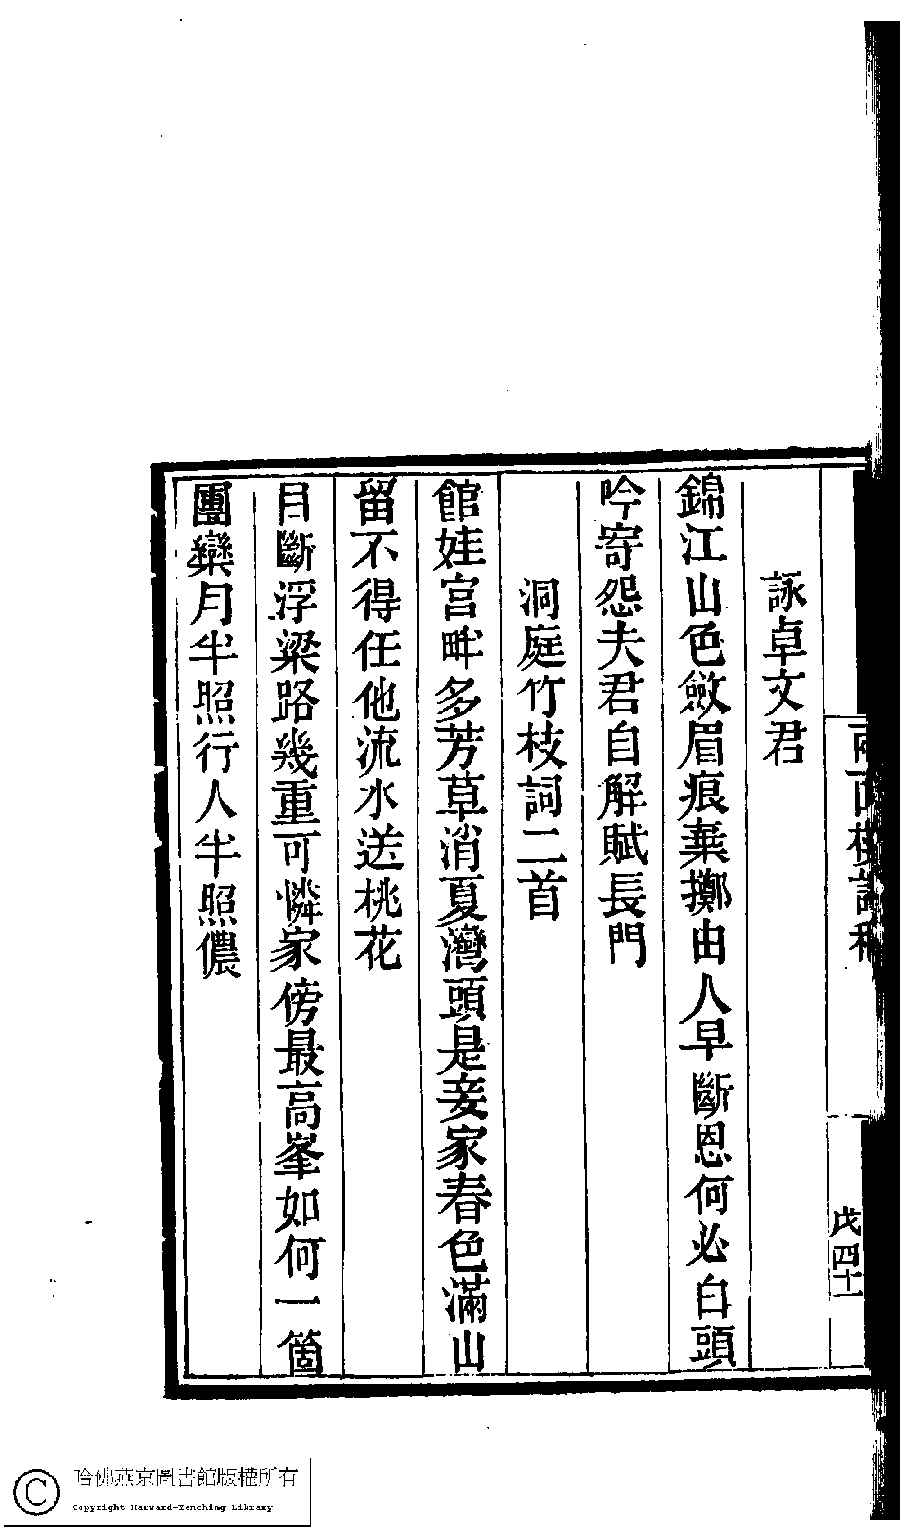 詠卓文君
錦江山色斂眉痕葉擲由人早斷恩何必白頭
吟寄怨夫君自解賦長門
洞庭竹枝詞二首
館娃宮畔多芳草消夏灣頭是妾家春色滿山
留不得任他流水送桃花
目斷浮梁路幾重可憐家傍最高峯如何一箇
團欒月半照行人半照儂
戊四十一
哈佛燕京圖書館版權所有
Copyright Harvard-Yenching Library